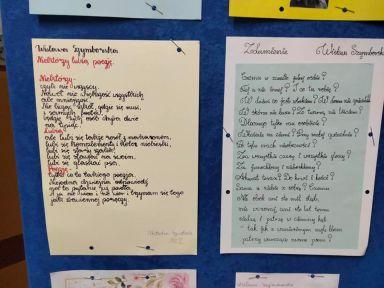 Wisława Szymborska
Niektórzy lubią poezję.
Niektórzy-
czyli nie wszyscy.
Nawet nie większość wszystkich
ale mniejszość.
Nie licząc szkół, gdzie się musi,
i samych poetów,
będzie tych osób chyba dwie
na tysiąc.
Lubią-
ale lubi się także rosół z makaronem,
lubi się komplementy i kolor niebieski,
lubi się stary szalik,
lubi się stawiać na swoim,
lubi się głaskać psa.
Poezję-
tylko co to takiego poezja.
Niejedna chwiejna odpowiedź
na to pytanie już padła.
A ja nie wiem i nie wiem i trzymam się tego
jak zbawiennej poręczy.
Zdumienie
Wisława Szymborska
Czemu w zanadto jednej osobie?
Tej a nie innej? I co tu robię?
W dzień co jest wtorkiem? W domu nie gnieździe?
W skórze nie łusce? Z twarzą nie liściem?
Dlaczego tylko raz osobiście?
Właśnie na ziemi? Przy małej gwieździe?
Po tylu erach nieobecności?
Za wszystkie czasy i wszystkie glony?
Akurat teraz? Do krwi i kości?
Sama u siebie z sobą? Czemu
nie obok ani sto mil stąd,
nie wczoraj ani sto lat temu
siedzę i patrzę w ciemny kąt
- tak jak z wzniesionym nagle łbem